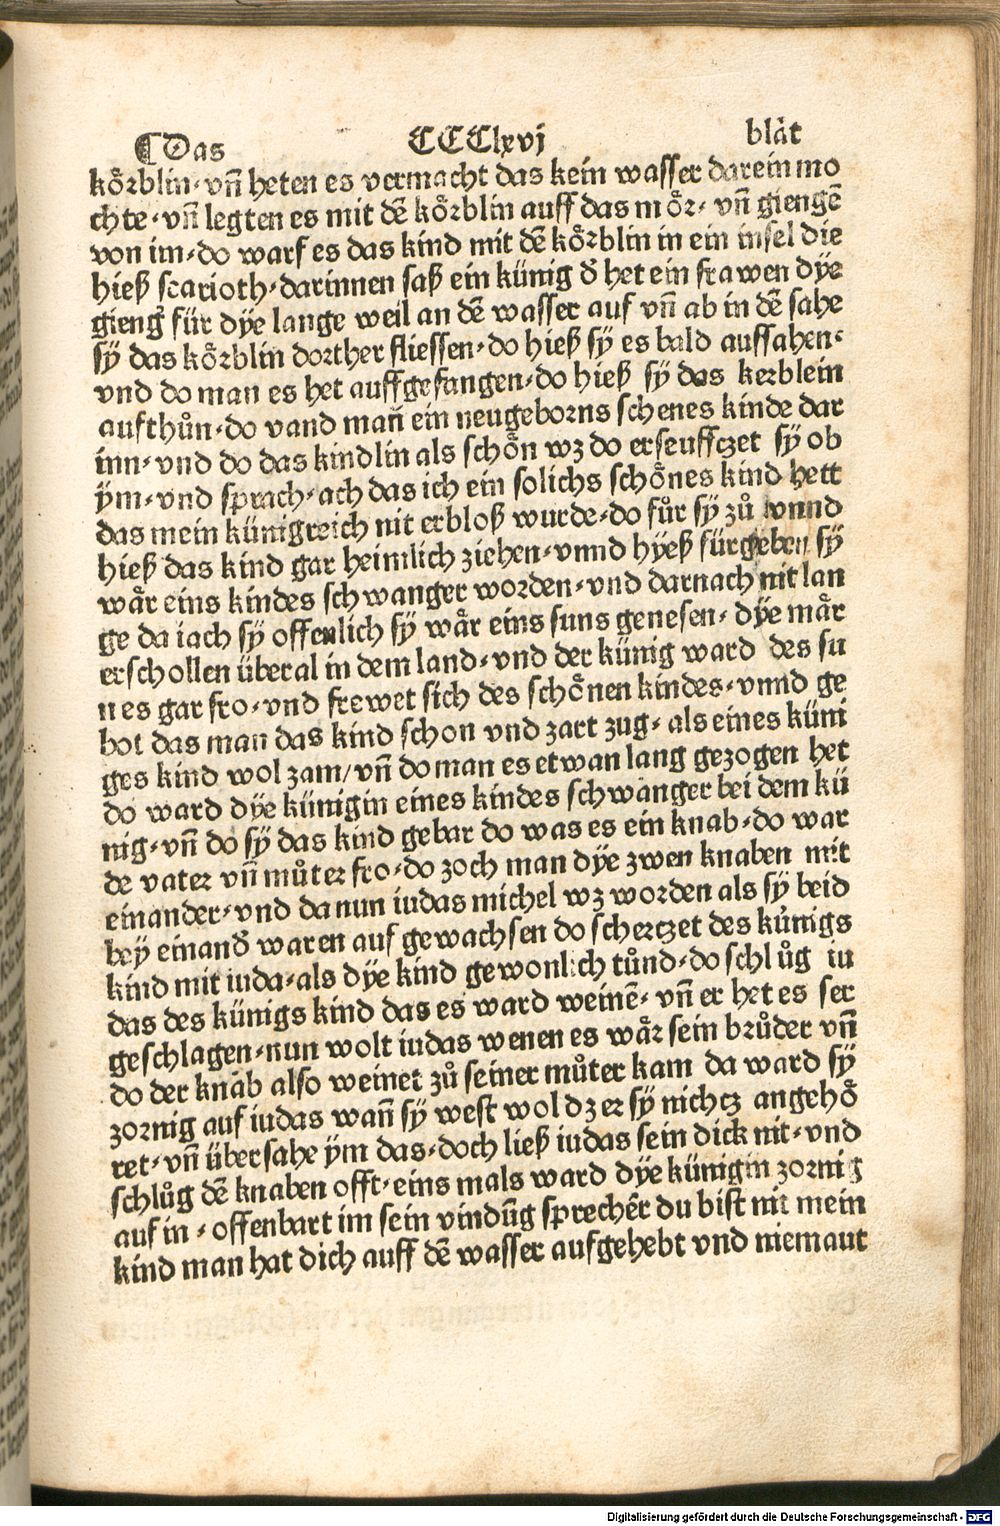 ¶Das CCClxvj blât
kôrblin· vn̄ heten es vermacht das kein wasser darein mo
chte· vn̄ legten es mit dē kôrblin auff das môr· vn̄ giengē
von im· do warf es das kind mit dē kôrblin in ein insel die
hieß scarioth· darinnen saß ein künig d̄ het ein frawen dÿe
gieng für dÿe lange weil an dē wasser auf vn̄ ab in dē sahe
sÿ das kôrblin dorther fliessen· do hieß sÿ es bald auffahen·
vnd do man es het auffgefangen· do hieß sÿ das kerblein
aufthůn· do vand man̄ ein neugeborns schenes kinde dar
inn· vnd do das kindlin als schôn wz do erseuffczet sÿ ob
ÿm· vnd sprach· ach das ich ein solichs schônes kind hett
das mein künigreich nit erbloß wurde· do fůr sÿ zů vnnd
hieß das kind gar heimlich ziehen· vnnd hÿeß fürgeben sÿ
wâr eins kindes schwanger worden· vnd darnach nit lan
ge da iach sÿ offenlich sÿ wâr eins suns genesen· dÿe mâr
erschollen überal in dem land· vnd der künig ward des su
nes gar fro· vnd frewet sich des schônen kindes· vnnd ge
bot das man das kind schon vnd zart zug· als eines küni
ges kind wol zam/ vn̄ do man es etwan lang gezogen het
do ward dÿe künigin eines kindes schwanger bei dem kü
nig· vn̄ do sÿ das kind gebar do was es ein knab· do war
de vater vn̄ můter fro· do zoch man dÿe zwen knaben mit
einander· vnd da nun iudas michel wz worden als sÿ beid
beÿ einand̄ waren auf gewachsen do scherczet des künigs
kind mit iuda· als dÿe kind gewonlich tůnd· do schlůg iu
das des künigs kind das es ward weinē· vn̄ er het es ser
geschlagen· nun wolt iudas wenen es wâr sein brůder vn̄
do der knab also weinet zů seiner můter kam da ward sÿ
zornig auf iudas wan̄ sÿ west wol dz er sÿ nichcz angehô
ret· vn̄ übersahe ÿm das· doch ließ iudas sein dick nit· vnd
schlůg dē knaben offt· eins mals ward dÿe künigin zornig
auf in · offenbart im sein vindūg sprechēt du bist nit mein
kind man hat dich auff dē wasser aufgehebt vnd niemant
Digitalisierung gefördert durch die Deutsche Forschungsgemeinschaft - DFG